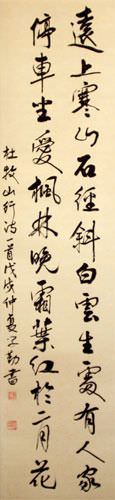 遠上寒山石徑斜白雲生處有人家
停車坐愛楓林晚霜葉紅於二月花
杜牧山行詩一首戊戌仲夏
書